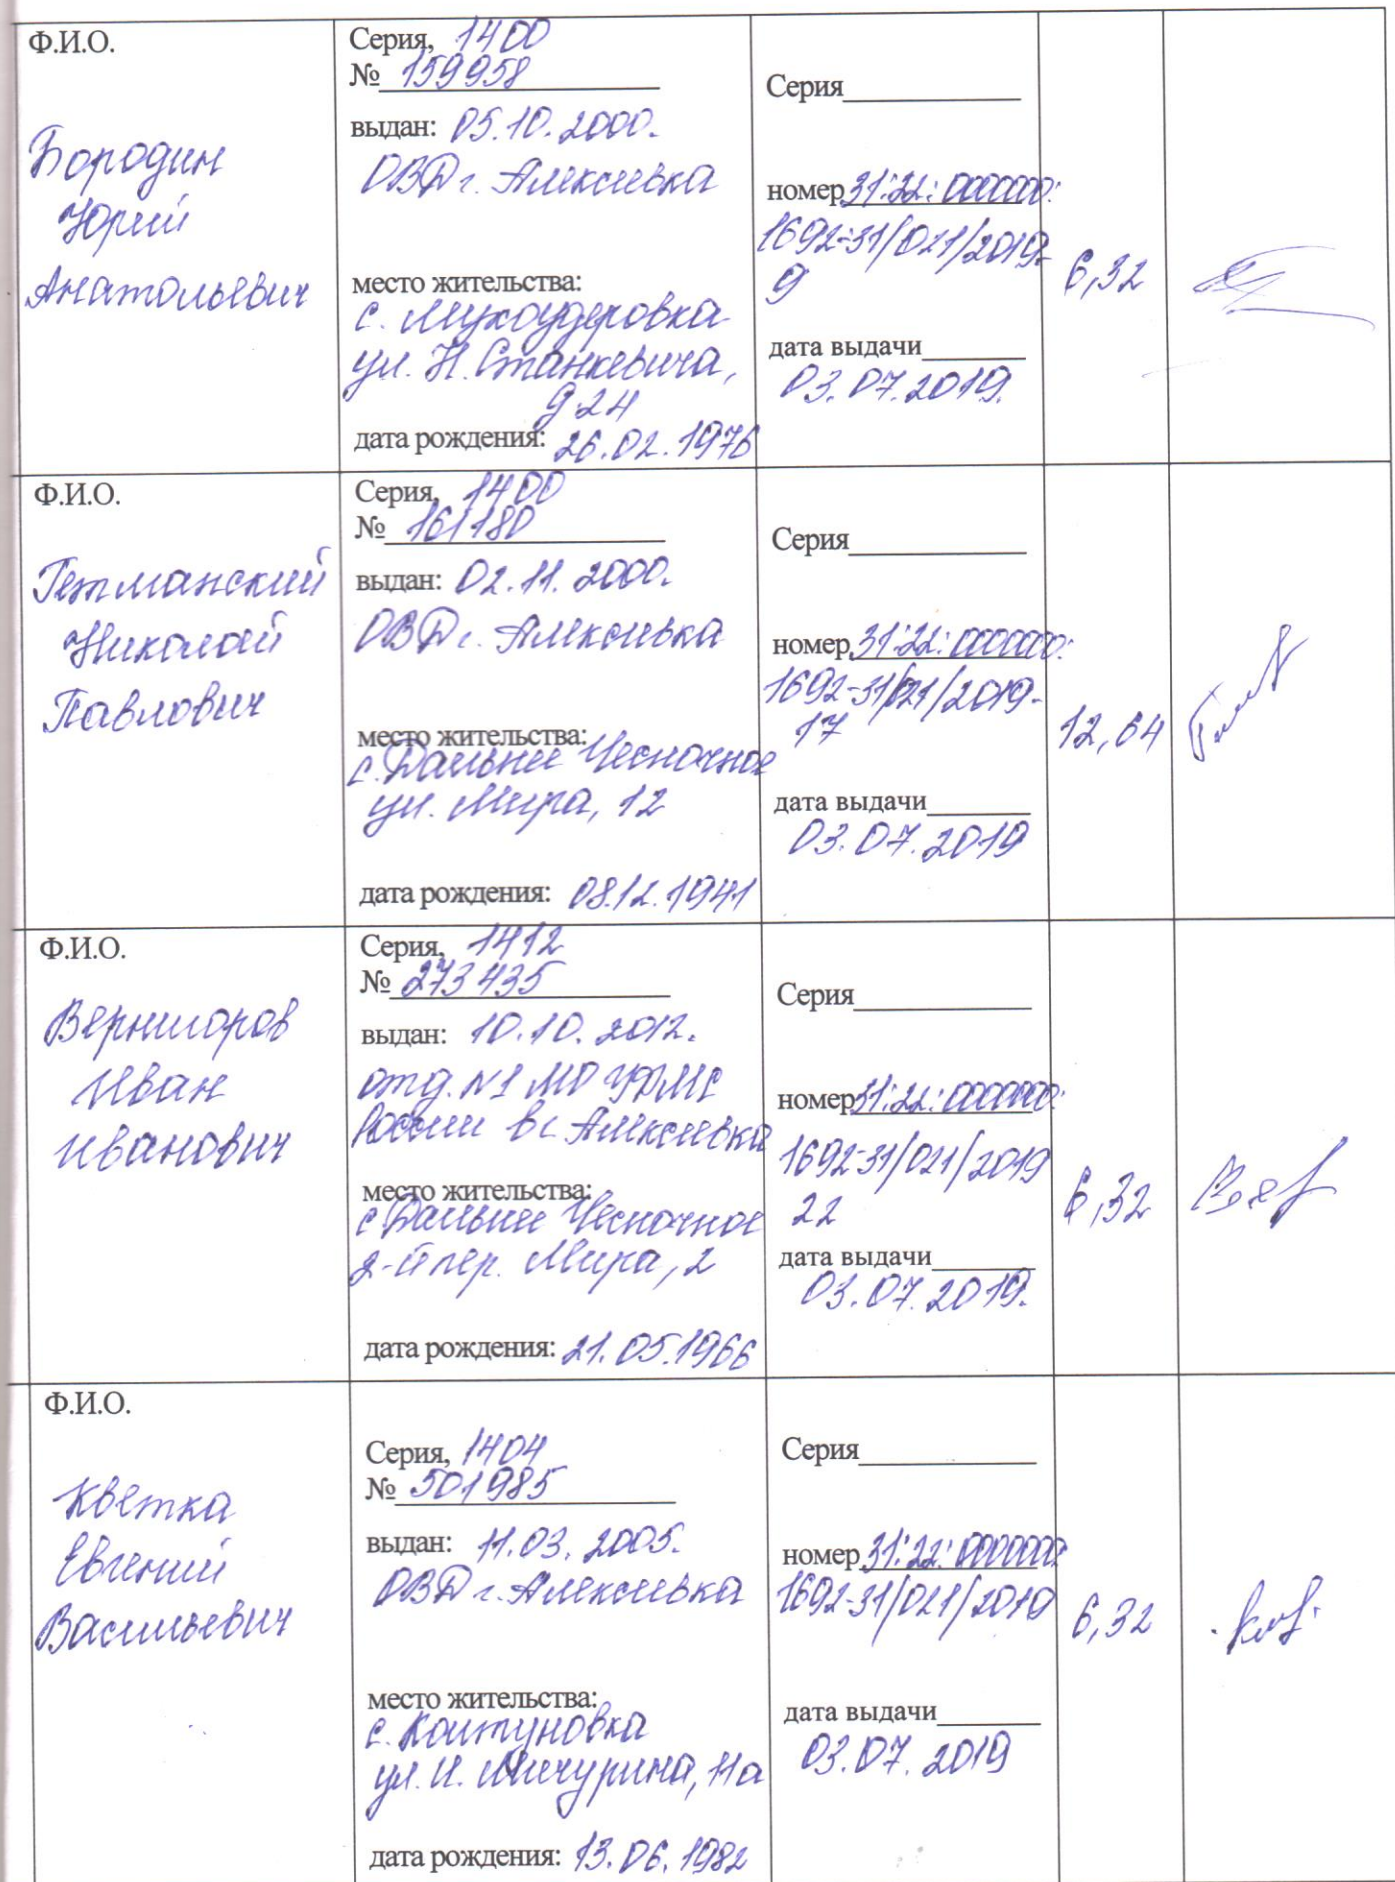 Ф.И.О.
Бородин
Юрий
Анатольевич
Серия, 1400
№ 159958
выдан: 05.10.2000.
ОВД г. Алексеевка
место жительства:
с. Мухоудеровка
ул. Н. Станкевича,
д 24
дата рождения: 26.02.1976
Серия
номер 31:22:0000000:
1692-31/021/2019-
9
дата выдачи
03.07.2019.
6,32
Ф.И.О.
Гетманский
Николай
Павлович
Серия, 1400
№ 161180
выдан: 02.11.2000.
ОВД г. Алексеевка
место жительства:
с. Дальнее Чесночное
ул. Мира, 12
дата рождения: 08.12.1941
Серия
номер 31:22:0000000:
1692-31/021/2019-
17
дата выдачи
03.07.2019
12,64
Ф.И.О.
Вернигоров
Иван
Иванович
Серия, 1412
№ 273435
выдан: 10.10.2012.
отд. №1 МО УФМС
России в г. Алексеевка
место жительства:
с Дальнее Чесночное
2-й пер. Мира, 2
дата рождения: 21.05.1966
Серия
номер 31:22:0000000:
1692-31/021/2019
22
дата выдачи
03.07.2019.
6,32
Ф.И.О.
Кветка
Евгений
Васильевич
Серия, 1404
№ 501985
выдан: 11.03.2005.
ОВД г. Алексеевка
место жительства:
с. Колтуновка
ул. И. Мичурина, 11а
дата рождения: 13.06.1982
Серия
номер 31:22:0000000:
1692-31/021/2019
дата выдачи
03.07.2019
6,32